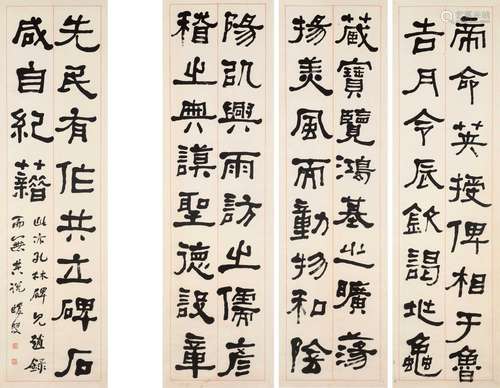 帝命英授俾相于魯
吉月令辰欽謁地龜
藏寶覽鴻基之曠蕩
揚美風而動物和陰
陽凱興雨訪之儒彥
稽之典謨聖德設章
先民有伯共立碑石
咸自紀藉
此亦孔林碑見隸錄
而無其說